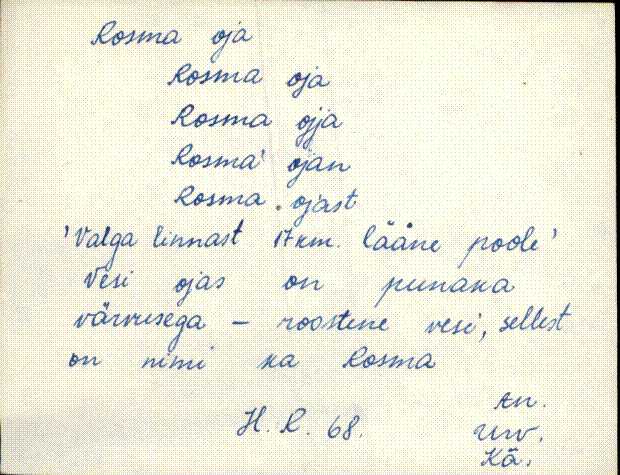 Rosma oja
Rosma oja
Rosma ojja
Rosma' ojan
Rosma ojast
'Valga linnast 17 km. lääne poole'
Vesi ojas on punaka
värvusega – roostene vesi, sellest
on nimi ka Rosma
H. R. 68.
An.
Urv.
Kä.